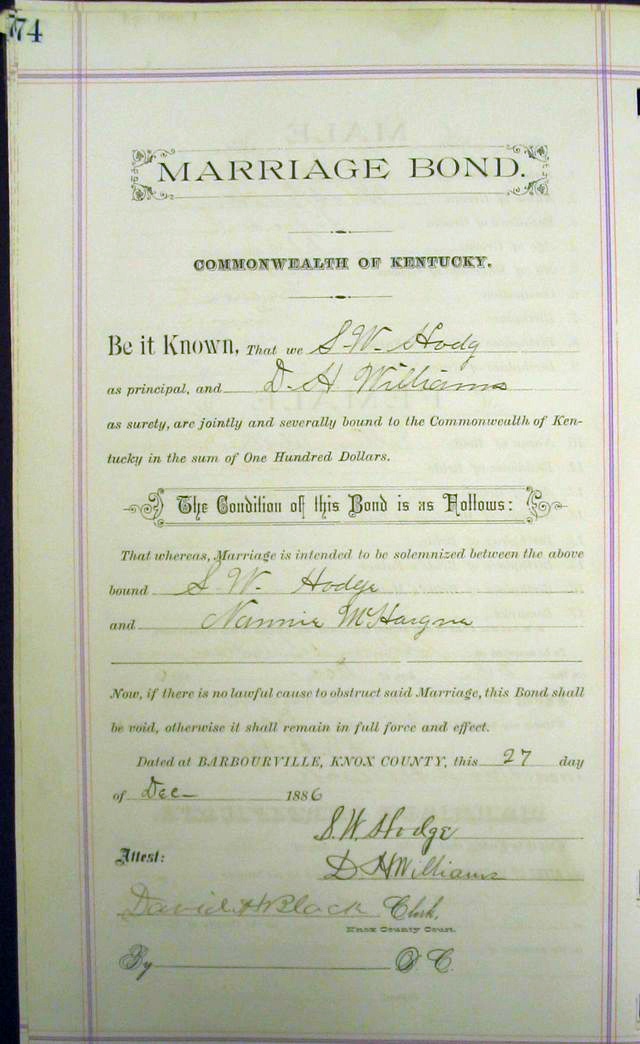 74
MARRIAGE BOND.
COMMONWEALTH OF KENTUCKY.
Be it Known, That we S. W. Hodg
as principal, and D. H Williams
as surety, are jointly and severally bound to the Commonwealth of Ken-
tucky in the sum of One Hundred Dollars.
The Condition of this Bond is as Follows:
That whereas, Marriage is intended to be solemnized between the above
bound S. W. Hodge
and Nannie McHargue
Now, if there is no lawful cause to obstruct said Marriage, this Bond shall
be void, otherwise it shall remain in full force and effect.
Dated at BARBOURVILLE, KNOX COUNTY, this 27 day
of Dec 1886
S. W. Hodge
Attest: D. H Williams
David H Black Clerk,
Knox County Court.
By D. C.